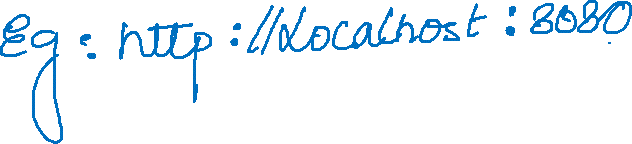 Eg : http://Localhost:8080